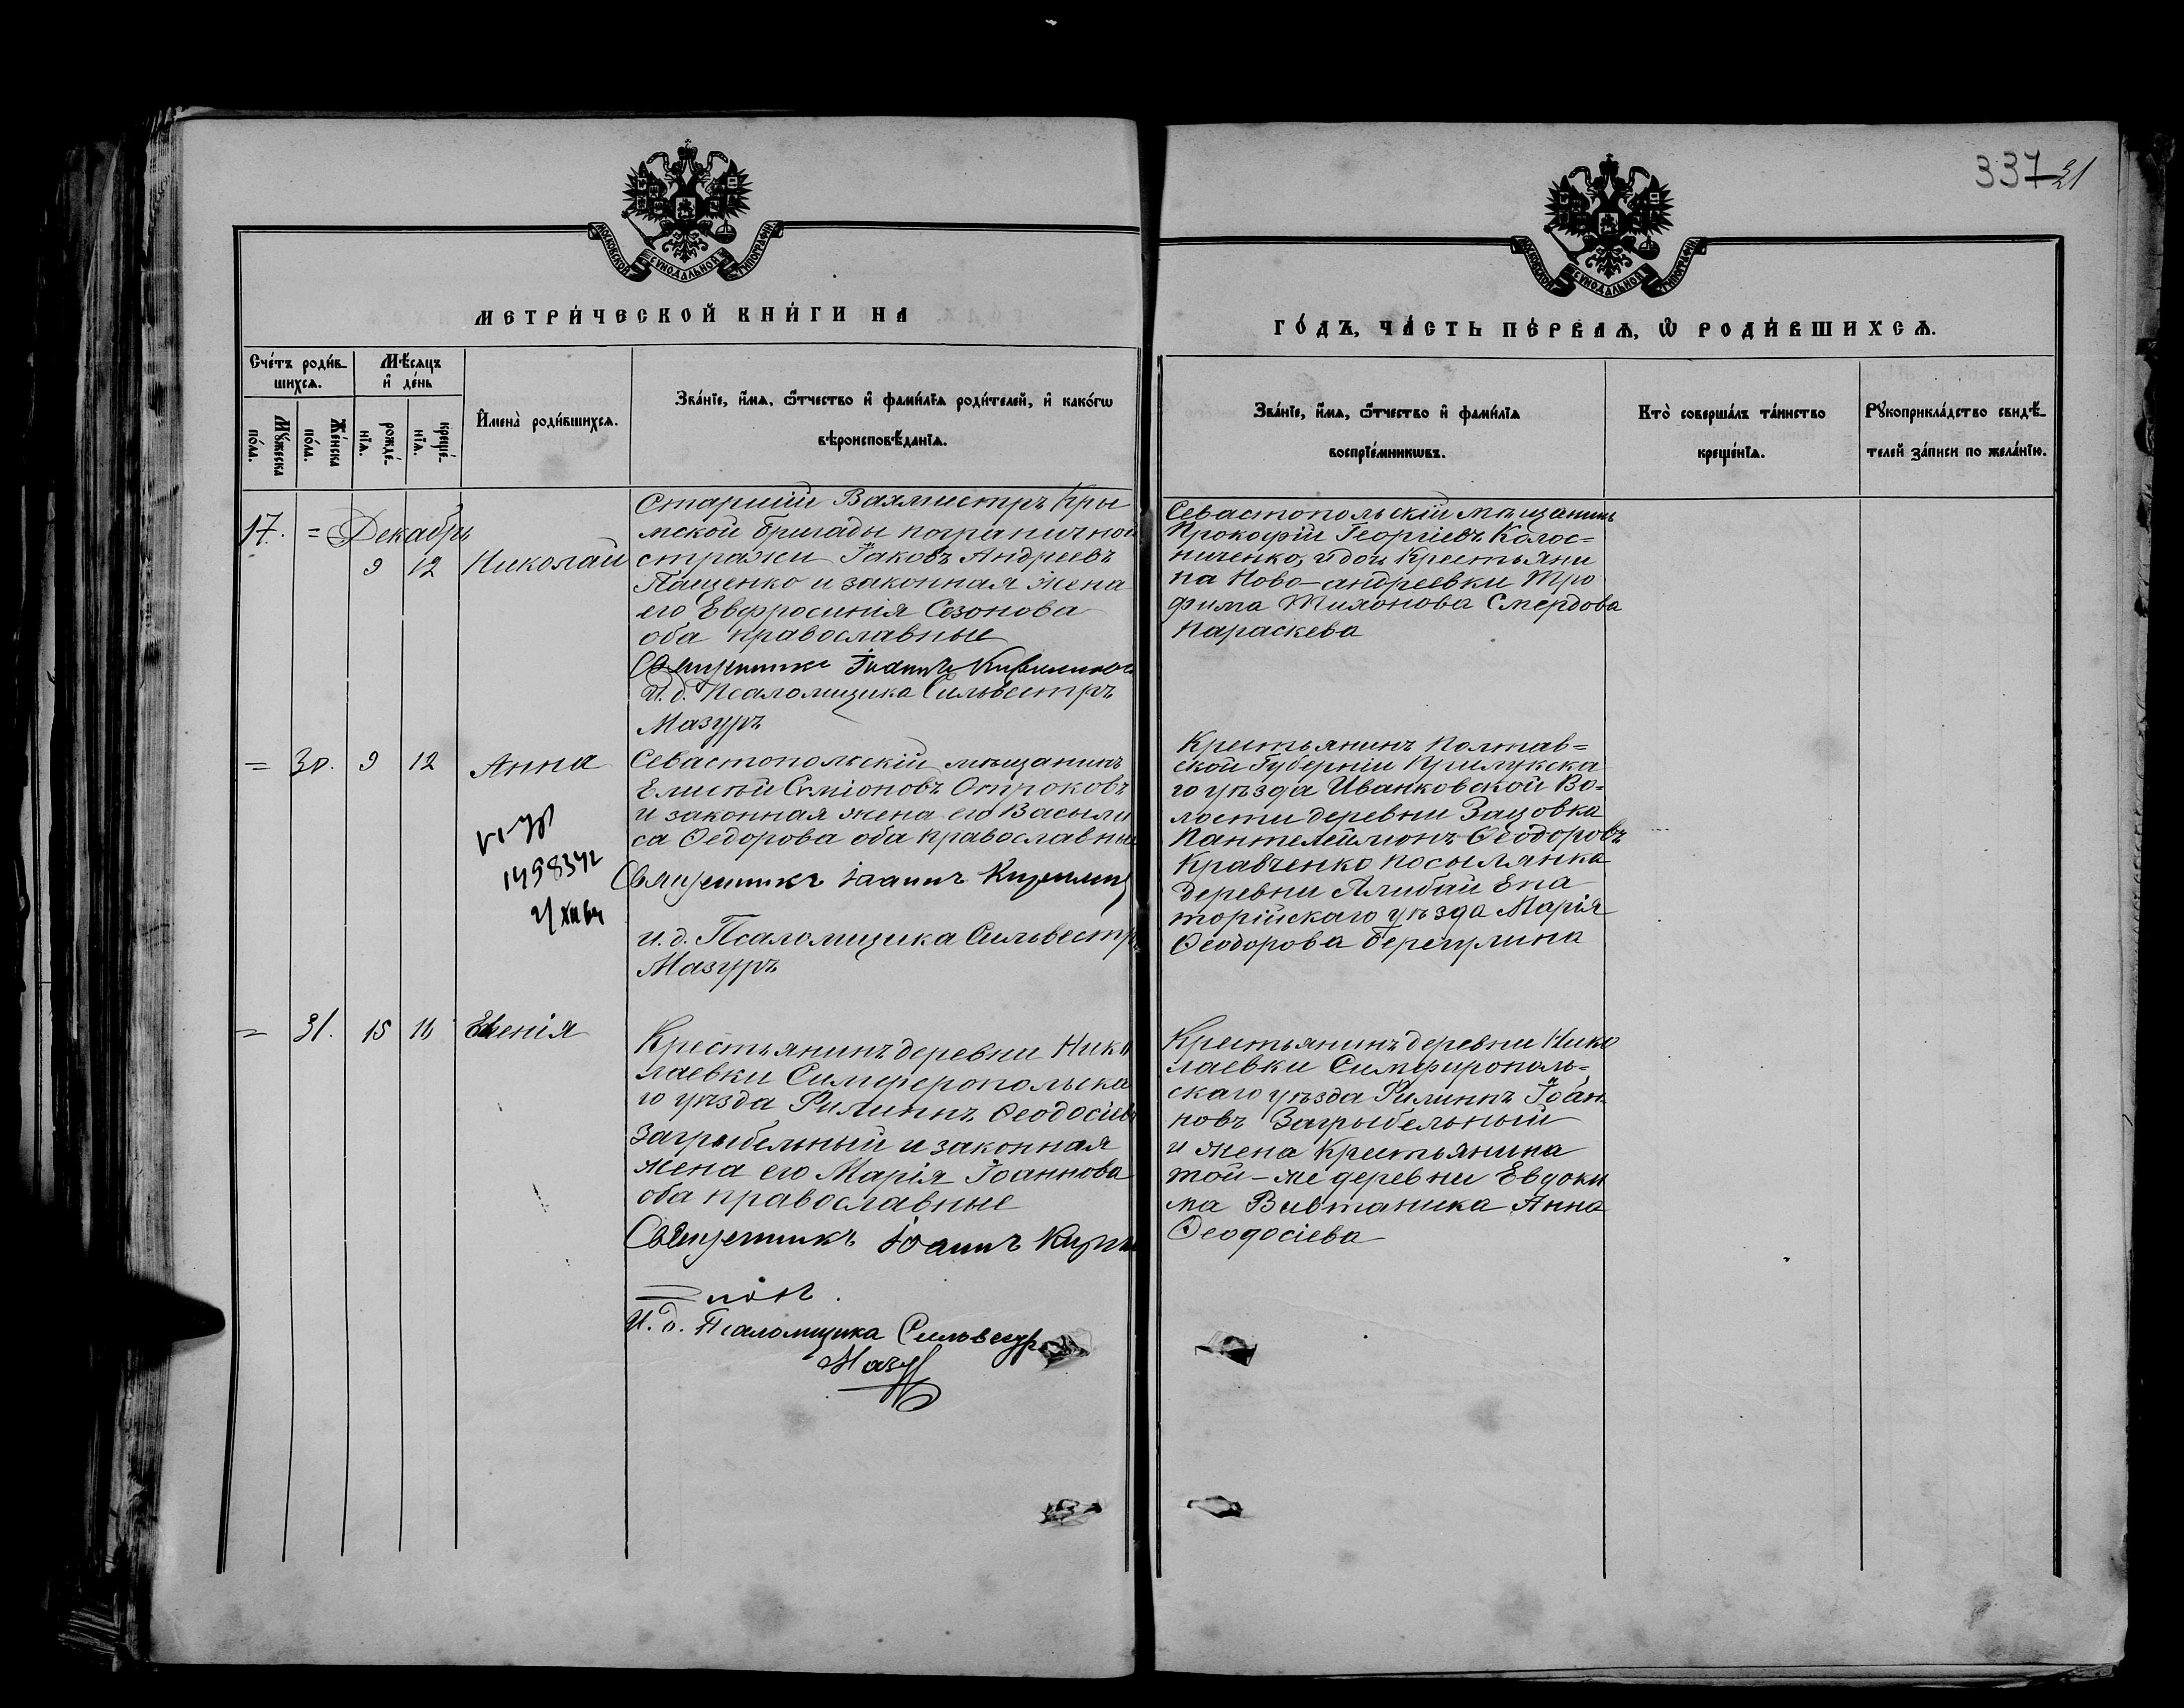 337 21
МОСКОВСКОЙ СѴНОДАЛЬНОЙ ТИПОГРАФІИ
МОСКОВСКОЙ СѴНОДАЛЬНОЙ ТИПОГРАФІИ
МЕТРИ́ЧЕСКОЙ КНИ́ГИ НА
ГО́ДЪ, ЧА́СТЬ ПЕ́РВАѦ, Ѡ҆ РОДИ́ВШИХСѦ.
Сче́тъ роди́в-
шихсѧ.
Мѣ́сѧцъ
и҆ де́нь
Мꙋ́жеска
по́ла.
Же́нска
по́ла.
рожде́-
нїѧ.
креще́-
нїѧ.
И҆мена̀ роди́вшихсѧ.
Зва́нїе, и҆́мѧ, ѻ҆́тчество и҆ фами́лїѧ роди́телей, и҆ како́гѡ
вѣроисповѣ́данїѧ.
Зва́нїе, и҆́мѧ, ѻ҆́тчество и҆ фами́лїѧ
воспрїе́мникѡвъ.
Кто̀ соверша́лъ та́инство
креще́нїѧ.
Рꙋкоприкла́дство свидѣ́-
телей за́писи по жела́нїю.
17. = Декабрь
9 12 Николай
Старшій Вахмистръ Кры
мской бригады пограничной
стражи Іаковъ Андреевъ
Пащенко и законная жена
его Евфросинія Созонова
оба православные
Священникъ Іоаннъ
И. д. Псаломщика Сильвестръ
Мазуръ
Севастопольскій мѣщанинъ
Прокофій Георгіевъ Колос=
ниченко, и дочь Крестьяни
на Ново-андреевки Тро
фима Тихонова Смердова
Параскева
= 30. 9 12 Анна
1498342
Севастопольскій мѣщанинъ
Елисѣй Симіоновъ Отроковъ
и законная жена его Васили
са Ѳедорова оба православные
Священникъ Іоаннъ
и. д. Псаломщика Сильвестръ
Мазуръ
Крестьянинъ Полтав=
ской Губерніи Прилукска
го уѣзда Иванковской Во=
лости деревни
Пантелеймонъ Ѳеодоровъ
Кравченко посылянка
деревни Алибай Евпа
торійскаго уѣзда Марія
Ѳеодорова
= 31. 15 16 Евгенія
Крестьянинъ деревни Нико
лаевки Симферопольска
го уѣзда Филиппъ Ѳеодосіевъ
Загрыбельный и законная
жена его Марія Іоаннова
оба православные
Священникъ Іоаннъ
И. д. Псаломщика Сильвестръ
Мазуръ
Крестьянинъ деревни Нико
лаевки Симфирополь=
скаго уѣзда Филиппъ Іоан
новъ Загрыбельный
и жена Крестьянина
той-же деревни Евдоки
ма Анна
Ѳеодосіева